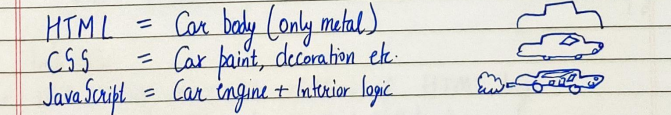 HTML = Car body (only metal)
CSS = Car paint, decoration etc.
JavaScript = Car engine + Interior logic